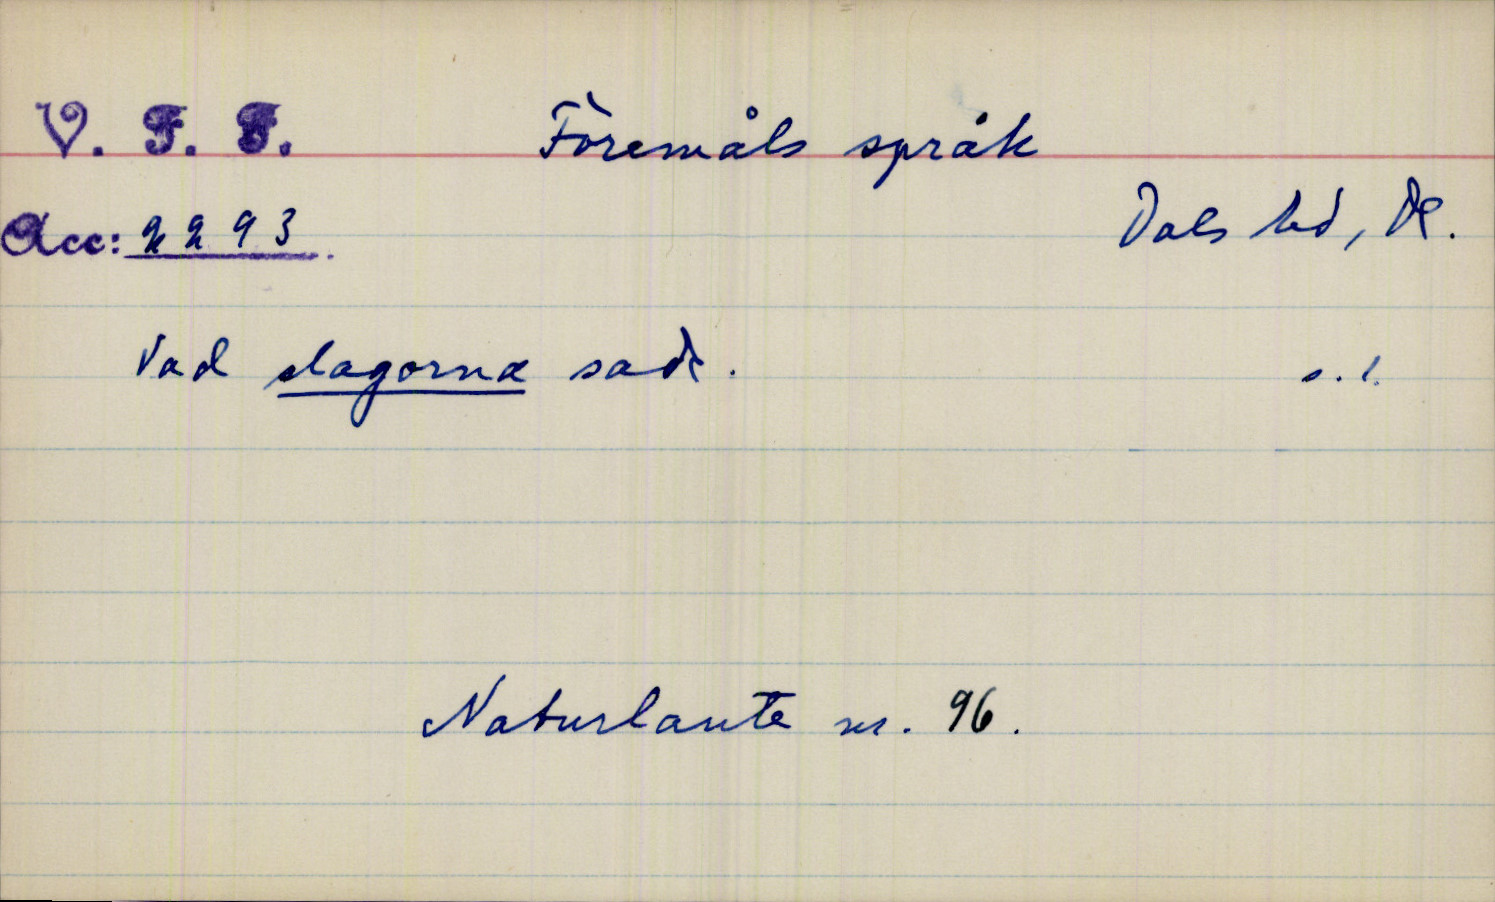 V. F. F.
Föremåls språk
Acc: 2293.
Dals hd, Dl.
Vad slagorna sade.
s. 1.
Naturlaute nr. 96.